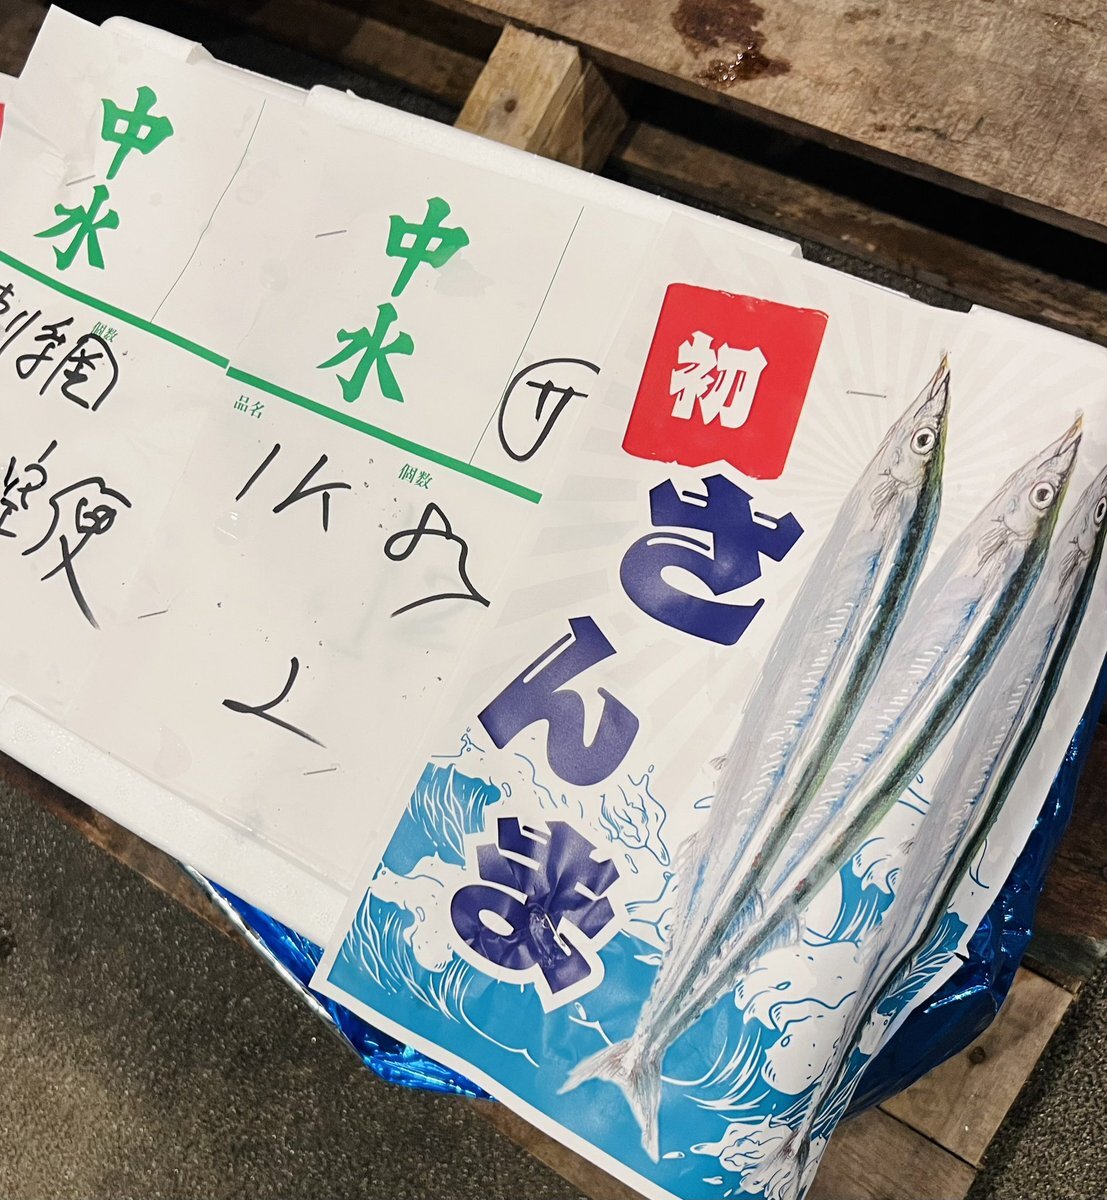 中水
個数
刺網
空便
中水
品名
個数
サ
1K
初
さんま